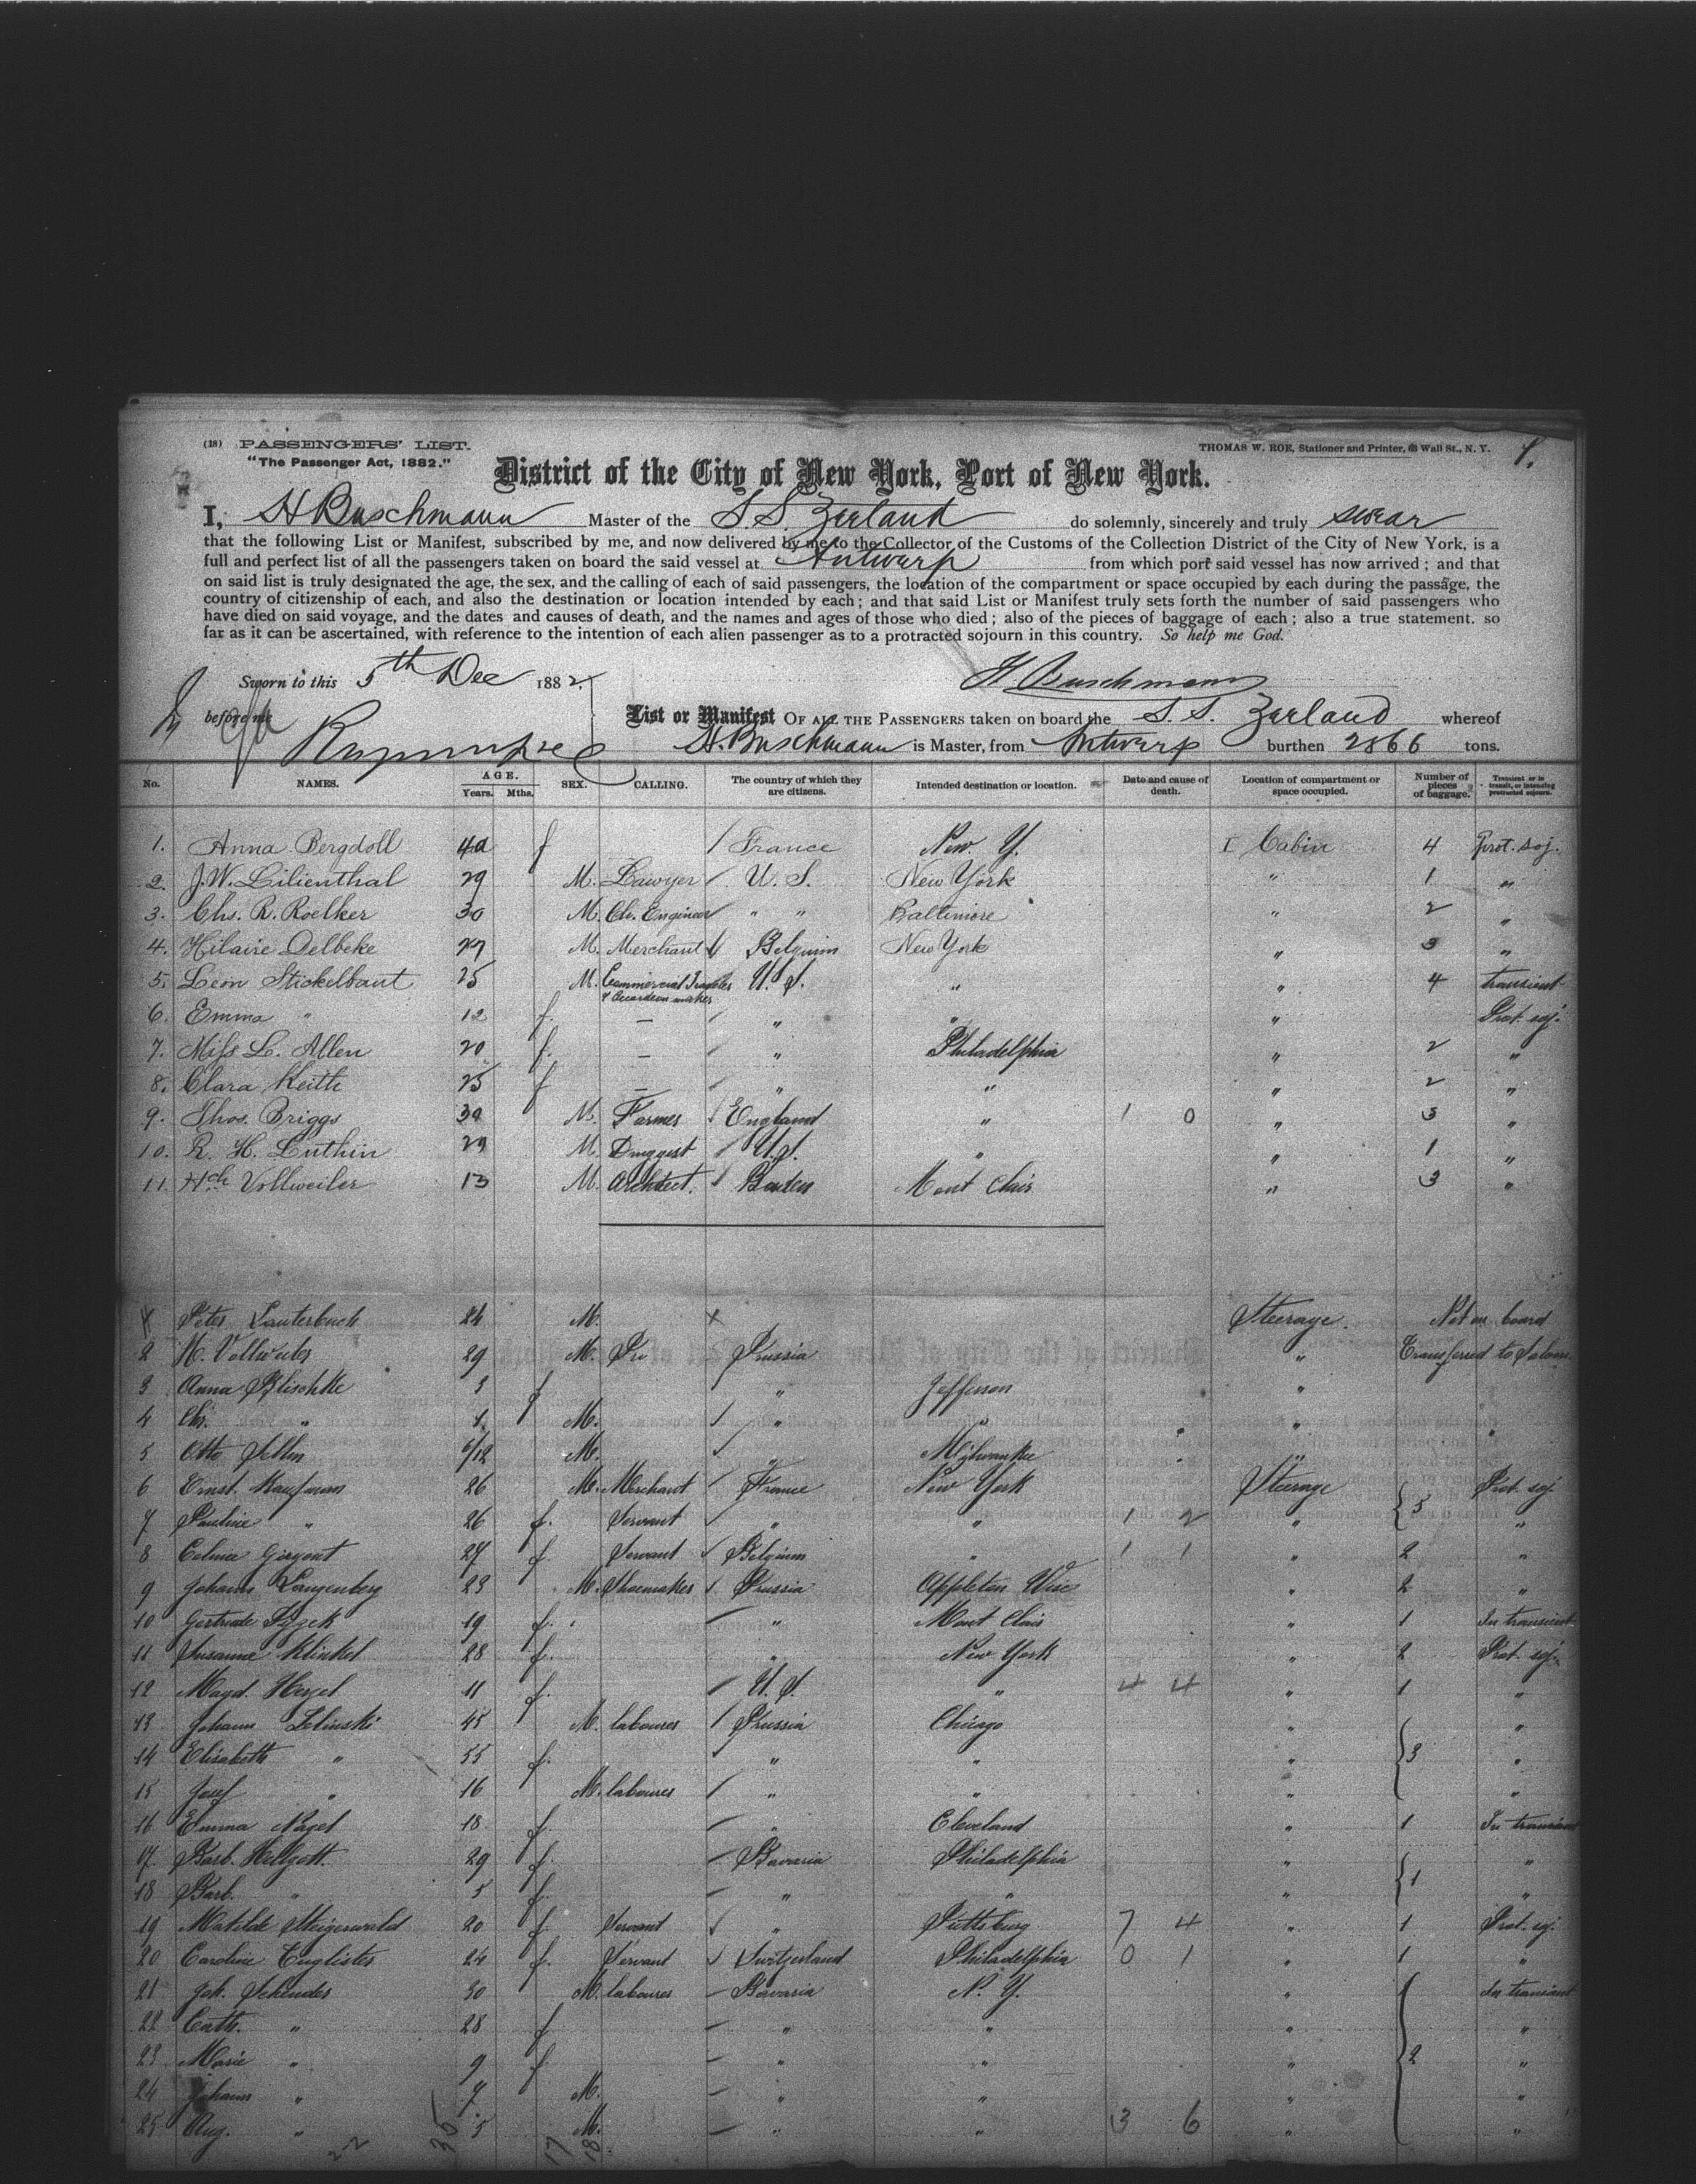 (18) PASSENGERS' LIST.
"The Passenger Act, 1882."
THOMAS W. ROE, Stationer and Printer, Wall St., N. Y. 1.
District of the City of New York, Port of New York.
I, H Buschmann Master of the S.S. Zeeland do solemnly, sincerely and truly swear
that the following List or Manifest, subscribed by me, and now delivered by me to the Collector of the Customs of the Collection District of the City of New York, is a
full and perfect list of all the passengers taken on board the said vessel at Antwerp from which port said vessel has now arrived; and that
on said list is truly designated the age, the sex, and the calling of each of said passengers, the location of the compartment or space occupied by each during the passage, the
country of citizenship of each, and also the destination or location intended by each; and that said List or Manifest truly sets forth the number of said passengers who
have died on said voyage, and the dates and causes of death, and the names and ages of those who died; also of the pieces of baggage of each; also a true statement. so
far as it can be ascertained, with reference to the intention of each alien passenger as to a protracted sojourn in this country. So help me God.
Sworn to this 5th Dec 1882. H Buschmann
before me
List or Manifest OF ALL THE PASSENGERS taken on board the S. S. Zeeland whereof
H. Buschmann is Master, from Antwerp burthen 2866 tons.
No. NAMES. AGE. Years. Mths. SEX. CALLING. The country of which they are citizens. Intended destination or location. Date and cause of death. Location of compartment or space occupied. Number of pieces of baggage. Transient or in transit, or intending protracted sojourn.
1. Anna Bergdoll 40 f / France New Y. I Cabin 4 prot. soj.
2. J.W. Lilienthal 29 M. Lawyer / U. S. New York " 1 "
3. Chs. R. Roelker 30 M. Civ. Engineer / " " Baltimore " 2 "
4. Hilaire Delbeke 27 M. Merchant Belgium New York " 3 "
5. Leon Stickelbaut 25 M. Commercial Traveler & Accordeon maker U. S. " " 4 transient
6. Emma " 12 f. — / " " " Prot. soj.
7. Miss L. Allen 20 f. — / " Philadelphia " 2 "
8. Clara Keith 25 f — / " " " 2 "
9. Thos. Briggs 30 M. Farmer / England " 1 0 " 3 "
10. R. H. Luthin 29 M. Druggist / U.S. " " 1 "
11. Hch Vollweiler 13 M. Architect. / Baden Mont Clair " 3 "
X Peter Lauterbach 24 M. X Steerage. Not on board
2 H. Vollweiler 29 M. Prussia " Transferred to Saloon
3 Anna Blischke 3 f / " Jefferson "
4 Chr. " M. / " " "
5 Otto Sellin 6/12 M. / " Milwaukee "
6 Ernst. Kaufmann 26 M. Merchant / France New York Steerage { 5 Prot. soj
7 Pauline " 26 f. Servant / " " 1 2 " "
8 Celina 27 f Servant / Belgium " 1 1 " 2 "
9 Johann Langenberg 23 M. Shoemaker / Prussia Appleton Wisc " 2 "
10 Gertrude 19 f. / " Mont Clair " 1 In transient
11 Susanne Klinkel 28 f. " New York " 2 Prot. soj.
12 Magd. Hezel 11 f. / U. S. " 4 4 " 1 "
13 Johann Zelinski 45 M. labourer / Prussia Chicago " { 3 "
14 Elisabeth " 55 f. / " " " "
15 Josef " 16 M. labourer / " " " "
16 Emma Nagel 18 f. / " Cleveland " 1 In transient
17 Barb. Hellgott. 29 f / Bavaria Philadelphia " { 1 "
18 Barb. " 5 f. / " " " "
19 Matilde Steigerwald 20 f. Servant / " Pittsburg 7 4 " 1 Prot. soj.
20 Caroline Englister 24 f. Servant / Switzerland Philadelphia 0 1 " 1 "
21 Joh. Schender 30 M. labourer / Bavaria N. Y. " { 2 In transient
22 Cath. " 28 f / " " " "
23 Marie " 9 f. / " " " "
24 Johann " 7 M. / " " " "
25 Aug. " 5 M. / " " 3 6 " "
22 35 17 18